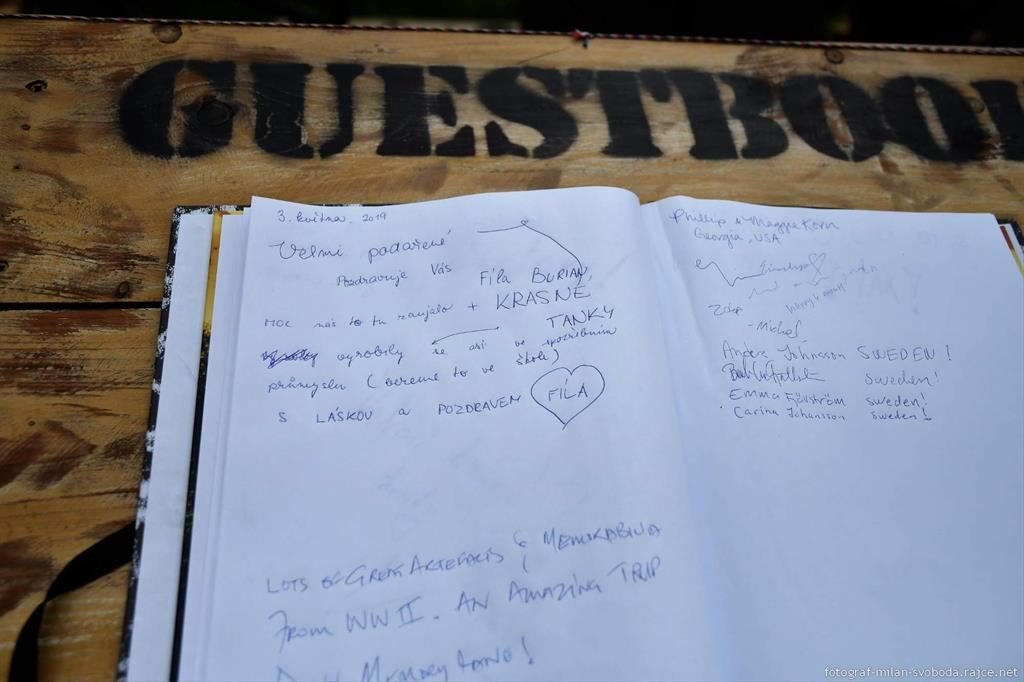 GUESTBOO
3. května, 2019
Velmi podařené
Pozdravuje Vás Fíla BURIAN,
MOC nás to tu zaujalo + KRASNÉ
TANKY
vyrobily se asi ve spotřebním
průmyslu (bereme to ve škole)
S LÁSKOU a POZDRAVEM FÍLA
LOTS OF GREAT ARTEFACTS & MEMORABILIA
FROM WW II. AN AMAZING TRIP
MEMORY LANE!
Phillip & Maggie Korn
Georgia, USA
- Michal
Anders Johnsson SWEDEN!
Sweden!
Emma sweden!
Carina Johansson sweden!
fotograf-milan-svoboda.rajce.net